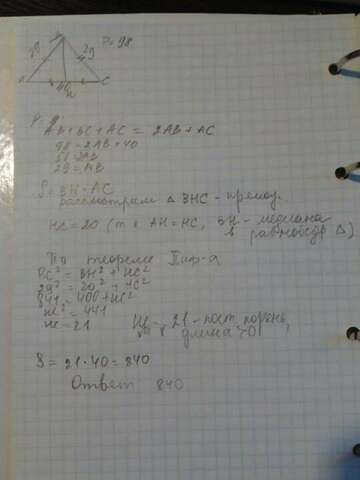 B P=98
29 29
A H C
40
P = 
AB + BC + AC = 2AB + AC
98 = 2AB + 40
58 = 2AB
29 = AB
S = BH · AC
рассмотрим △ BHC - прямоуг.
HC = 20 (т к AH = HC, BH - медиана
в равнобедр △)
По теореме Пиф-а
BC² = BH² + HC²
29² = 20² + HC²
841 = 400 + HC²
HC² = 441
HC = 21 HC - 21 - пост. корень,
длина >0
S = 21 · 40 = 840
Ответ 840